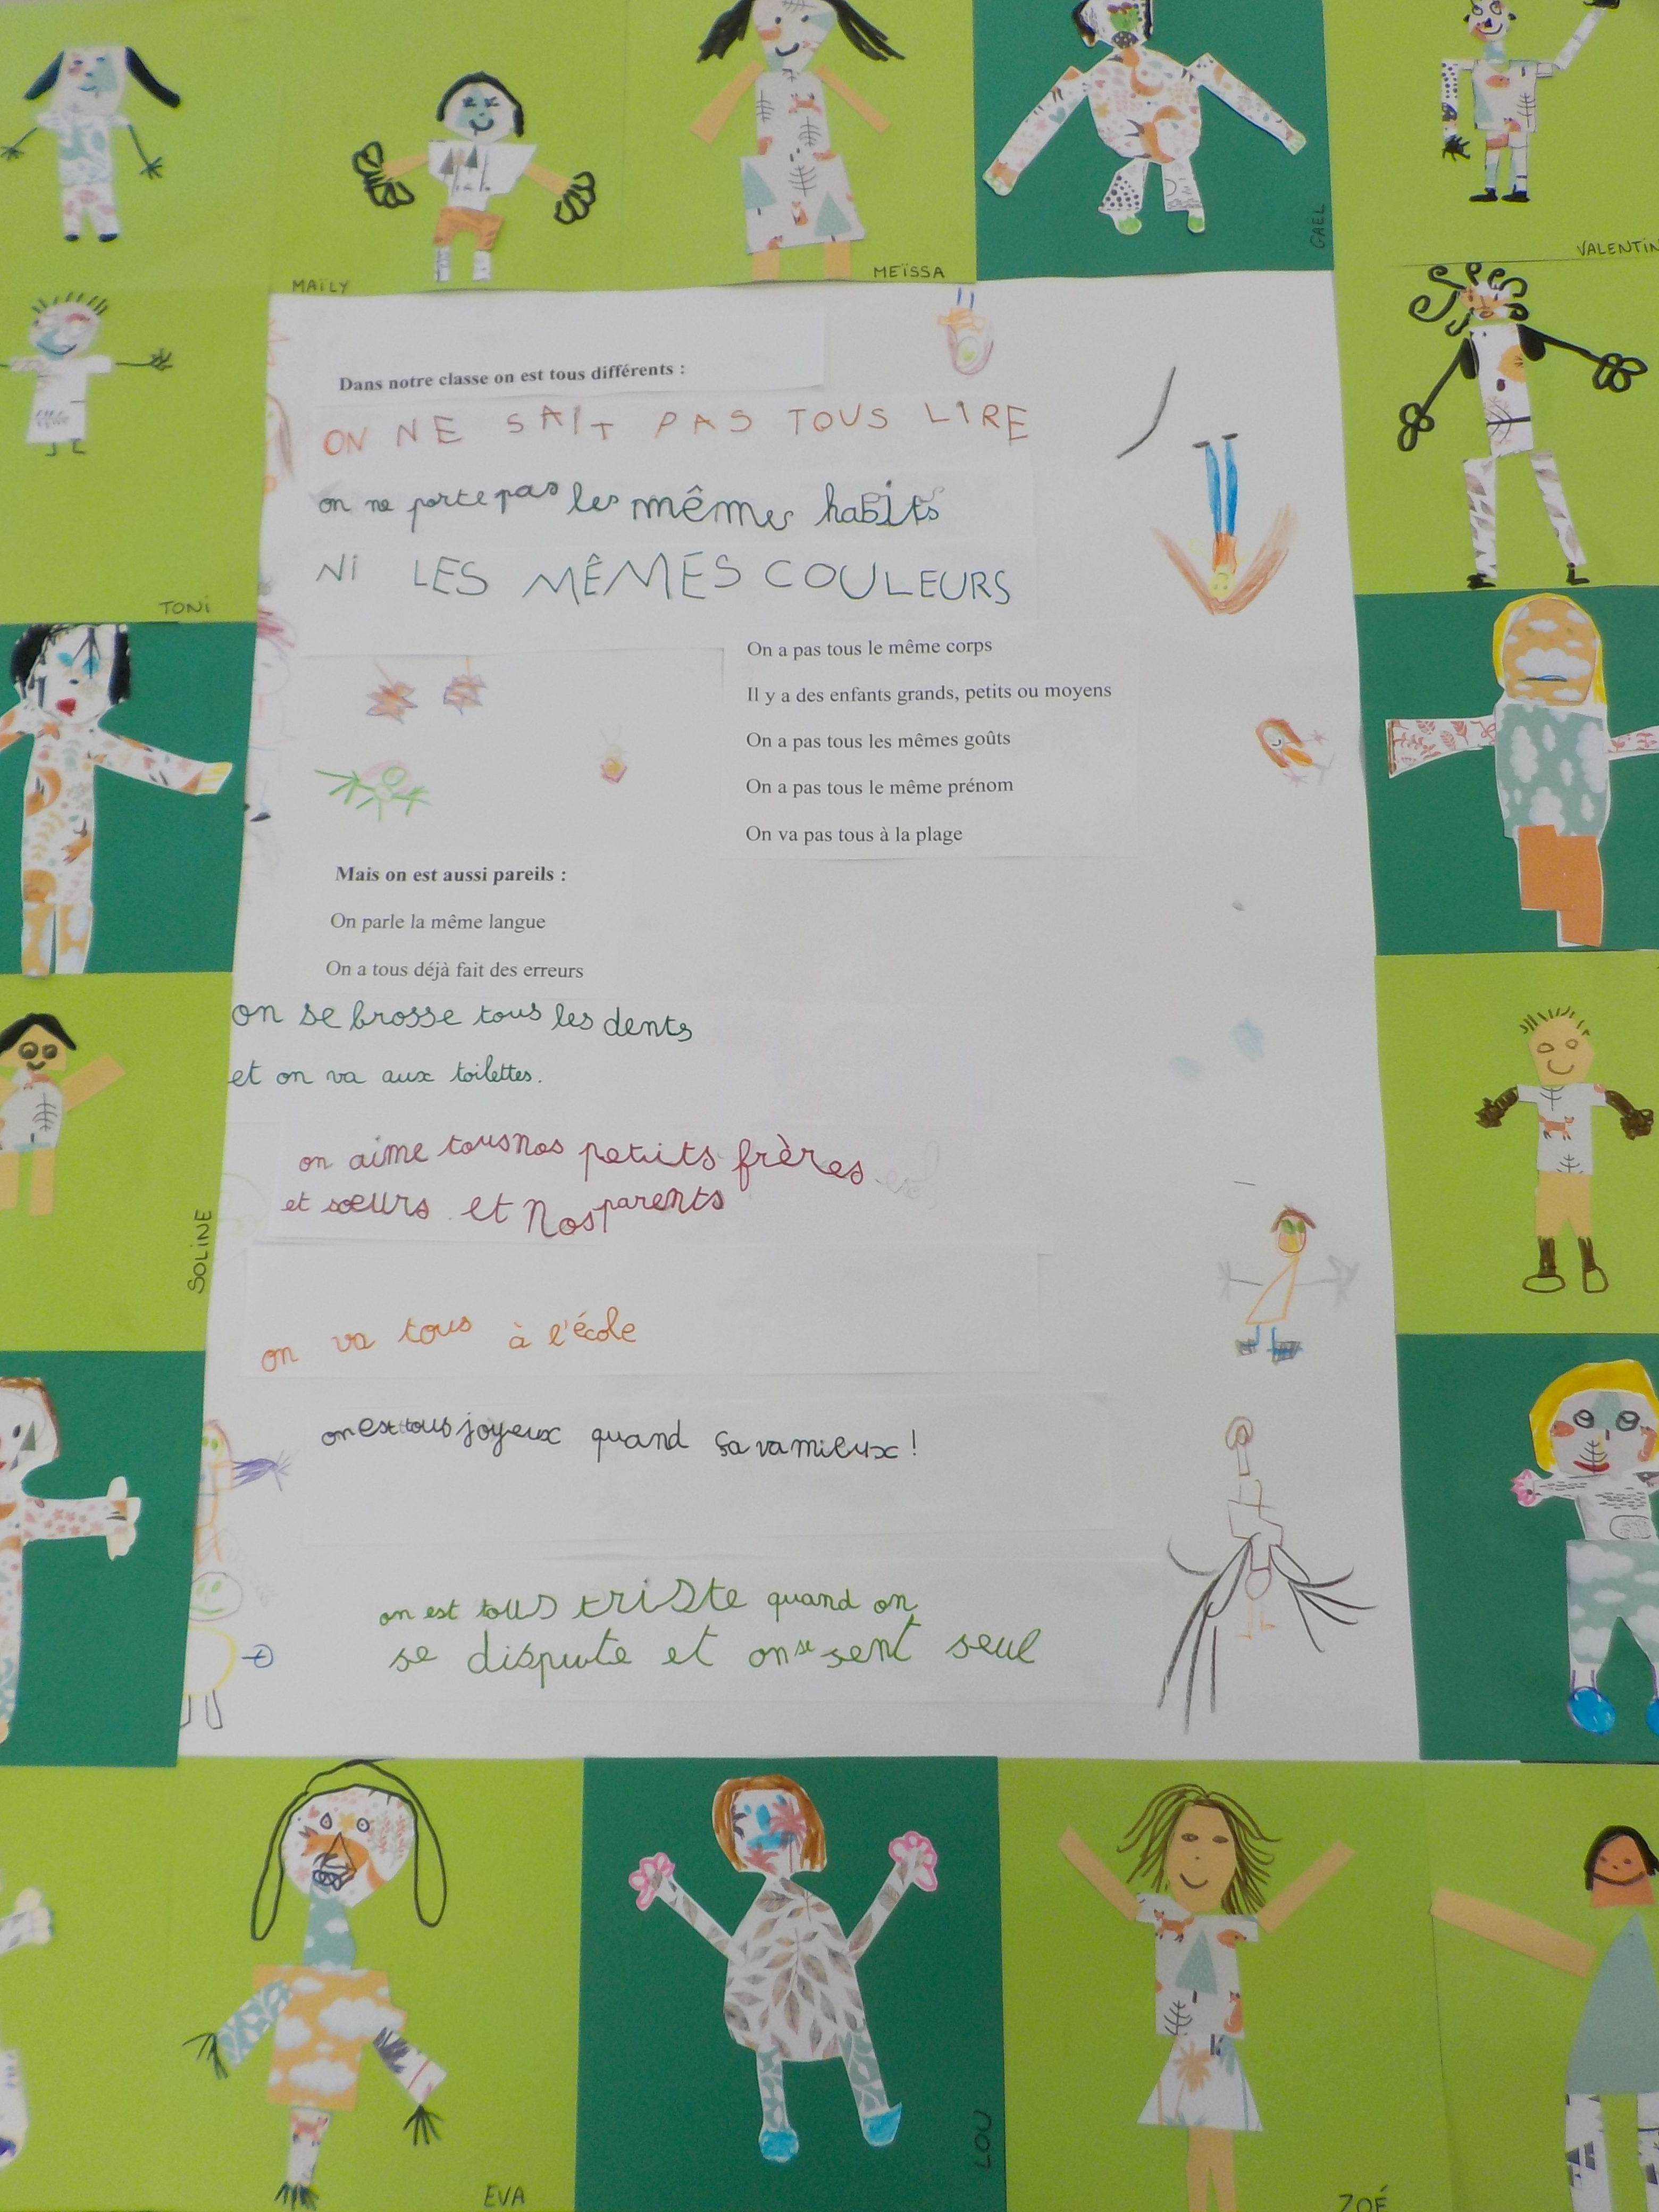 GAEL
VALENTIN
MAÏLY
MEÏSSA
Dans notre classe on est tous différents :
ON NE SAIT PAS TOUS LIRE
on ne porte pas les mêmes habits
NI LES MÊMES COULEURS
TONI
On a pas tous le même corps
Il y a des enfants grands, petits ou moyens
On a pas tous les mêmes goûts
On a pas tous le même prénom
On va pas tous à la plage
Mais on est aussi pareils :
On parle la même langue
On a tous déjà fait des erreurs
on se brosse tous les dents
et on va aux toilettes.
on aime tous nos petits frères
et sœurs et nos parents
SOLINE
on va tous à l'école
on est tous joyeux quand ça va mieux !
on est tous triste quand on
se dispute et on se sent seul
EVA
LOU
ZOÉ